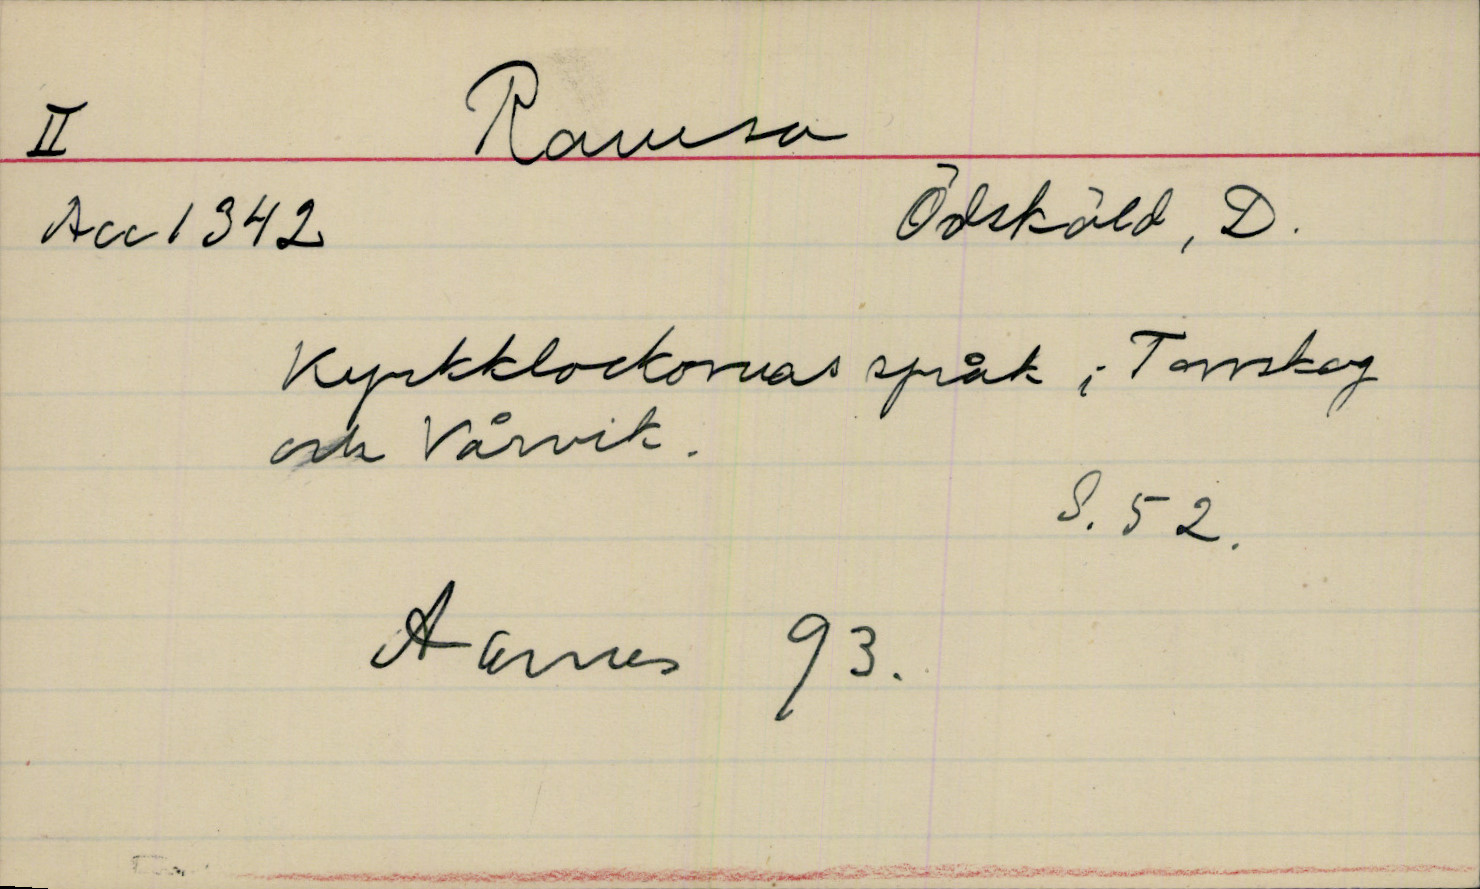 II Ramsa
Acc 1342 Ödsköld, D.
Kyrkklockornas språk i Torrskog
och Vårvik.
S. 52.
Aarnes 93.